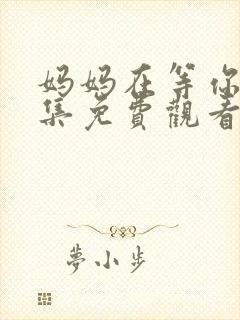 妈妈在等你
集免費觀看
夢小步